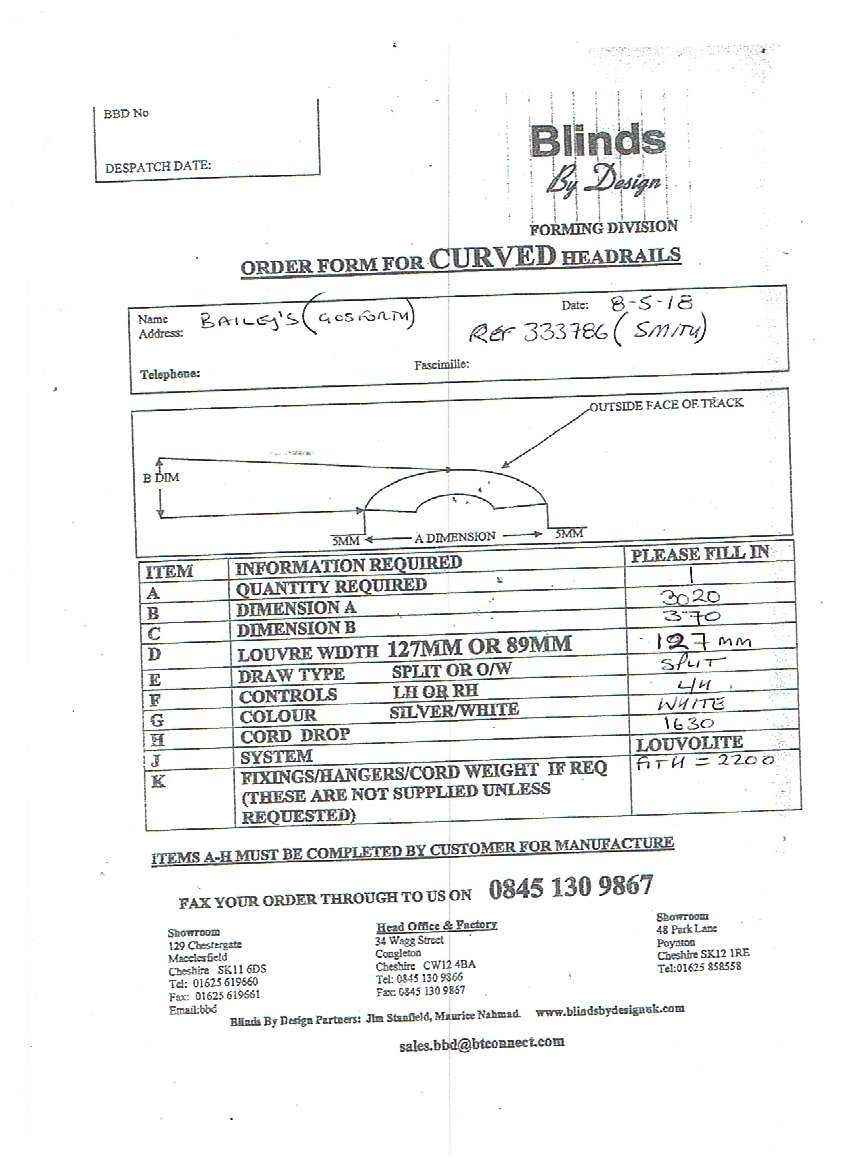 BBD No
DESPATCH DATE:
Blinds
By Design
FORMING DIVISION
ORDER FORM FOR CURVED HEADRAILS
Name BAILEY'S (GOSFORTH) Date: 8-5-18
Address: REF 333786 (SMITH)
Telephone: Fascimilie:
OUTSIDE FACE OF TRACK
B DIM
5MM A DIMENSION 5MM
ITEM INFORMATION REQUIRED PLEASE FILL IN
A QUANTITY REQUIRED 1
B DIMENSION A 3020
C DIMENSION B 370
D LOUVRE WIDTH 127MM OR 89MM 127 MM
E DRAW TYPE SPLIT OR O/W SPLIT
F CONTROLS LH OR RH L/H
G COLOUR SILVER/WHITE WHITE
H CORD DROP 1630
J SYSTEM LOUVOLITE
K FIXINGS/HANGERS/CORD WEIGHT IF REQ ATH = 2200
(THESE ARE NOT SUPPLIED UNLESS
REQUESTED)
ITEMS A-H MUST BE COMPLETED BY CUSTOMER FOR MANUFACTURE
FAX YOUR ORDER THROUGH TO US ON 0845 130 9867
Showroom
129 Chestergate
Macclesfield
Cheshire SK11 6DS
Tel: 01625 619660
Fax: 01625 619661
Email:bbd
Head Office & Factory
34 Wagg Street
Congleton
Cheshire CW12 4BA
Tel: 0845 130 9866
Fax: 0845 130 9867
Showroom
48 Park Lane
Poynton
Cheshire SK12 1RE
Tel:01625 858558
Blinds By Design Partners: Jim Stanfield, Maurice Nahmad. www.blindsbydesignuk.com
sales.bbd@btconnect.com